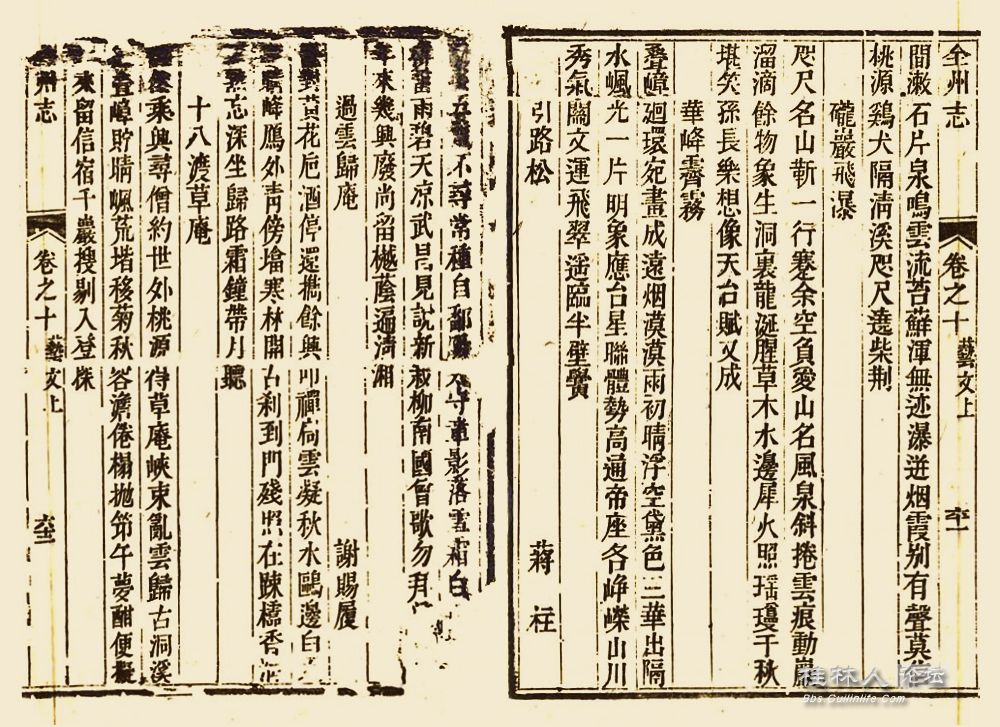 全州志 卷之十 藝文上 六十一
間漱石片泉鳴雲流苔蘚渾無迹瀑迸烟霞别有聲莫
桃源鷄犬隔清溪咫尺遶柴荆
礲巖飛瀑
咫尺名山靳一行蹇余空負愛山名風泉斜捲雲痕動巖
溜滴餘物象生洞裏龍涎腥草木水邊犀火照瑶瓊千秋
堪笑孫長樂想像天台賦又成
華峰霽霧
疊嶂廻環宛畫成遠烟漠漠雨初晴浮空黛色三華出隔
水嵐光一片明象應台星聯體勢高通帝座各崢嶸山川
秀氣關文運飛翠遥臨半壁黌
引路松 蔣柱
不尋常種自 影落雪霜白
雨碧天凉武昌見説新栽柳南國曾歌勿拜
年來幾興廢尚留樾蔭遍清湘
過雲歸庵 謝賜履
對黄花巵酒停還携餘興叩禪扃雲凝秋水鷗邊白
晴峰鴈外青傍壋寒林開古刹到門殘照在踈橋香
忘深坐歸路霜鐘帶月聽
十八渡草庵
乘興尋僧約世外桃源得草庵峽束亂雲歸古洞溪
疊嶂貯晴嵐荒堦移菊秋容澹倦榻抛笻午夢酣便擬
來留信宿千巖搜剔入登探
州志 卷之十 藝文上 六十二
桂林人论坛
Bbs.Guilinlife.Com